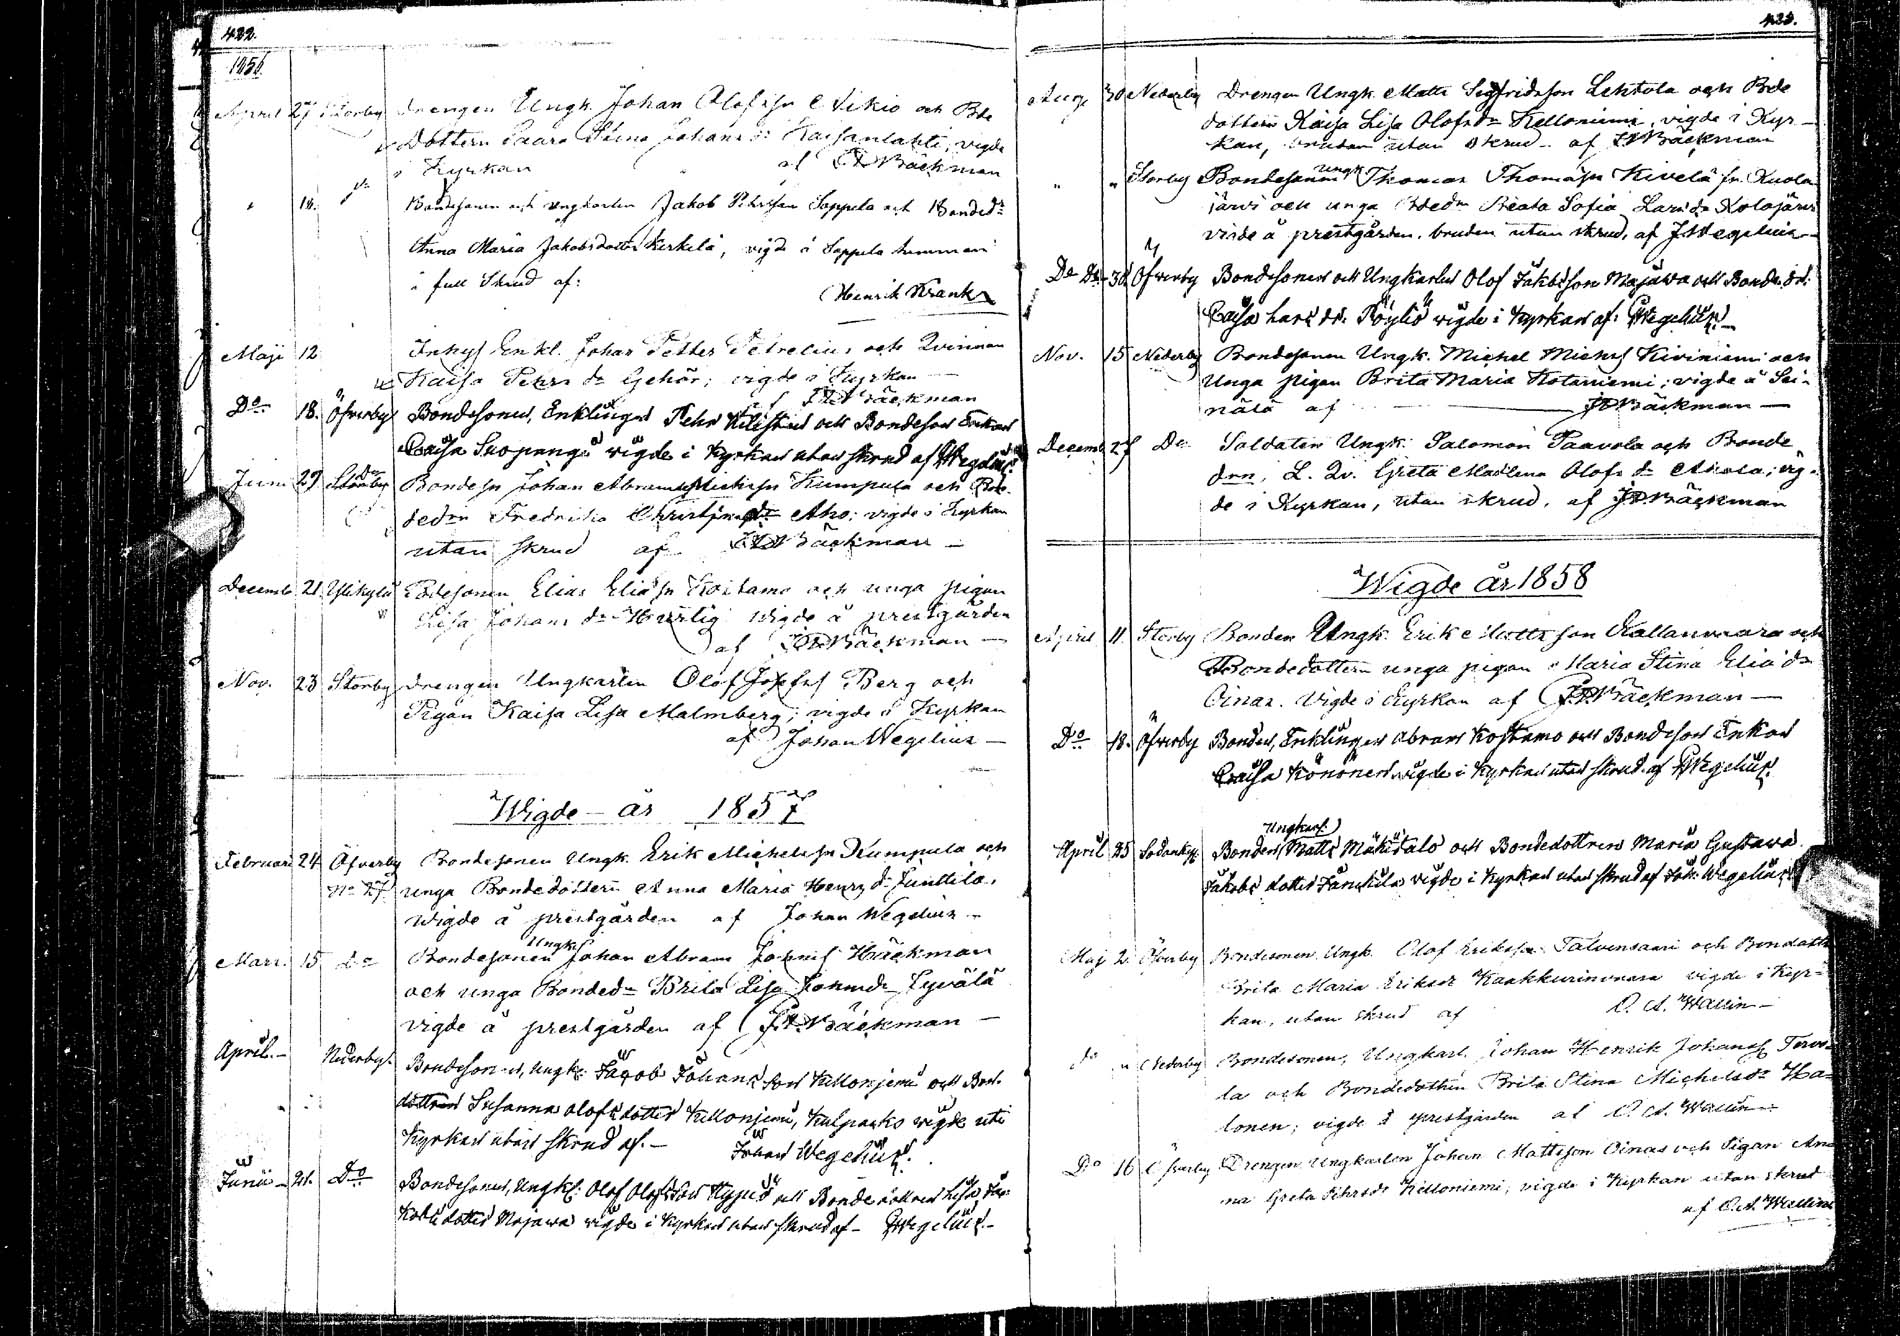 422.
1856
April 27 Storby Drengen Ungk. Johan Olofsson Nikio och Bde
Dottern Caara Stina Johans dr Kaisanlahti, vigde
i Kyrkan af J.A. Bäckman
" 18. Bondesonen och ungkarlen Jakob Pehrsson Soppela och Bondedr
Anna Maria Jakobsdotter Kerkelä, vigde å Soppela hemman
i full skrud af:
Henrik Krank
Maji 12 Inhys Enkl. Johan Petter Petrelius och Qvinnan
Kaisa Pehrs dr Gehör; vigde i Kyrkan
af Bäckman
Do 18. Öfverby Bondesonen, Enklingen Pehr och Bondeson Enkan
Caisa Suopangi vigde i Kyrkan utan skrud af Wegelius
Juni 29 Bondesn Johan Abram Kumpula och Bon-
dedrn Fredrika dr Aho; vigde i Kyrkan
utan skrud af Bäckman
Decemb 21 Ylikylä Bdesonen Elias Eliasn Kostamo och unga pigan
Lisa Johans dr Hurtig vigde å prestgården
af Bäckman
Nov. 23 Storby Drengen Ungkarlen Olof Josefss Berg och
Pigan Kaisa Lisa Malmberg; vigde i Kyrkan
af Johan Wegelius
Wigde år 1857
Februari 24 Öfverby Bondesonen Ungk. Erik Michelsn Kumpula och
No 27 unga Bondedottern Anna Maria Henrs dr Junttila,
vigde å prestgården af Johan Wegelius
Mars. 15 do Ungk
Bondesonen Johan Abram Häckman
och unga Bondedr Brita Lisa Johansdr Jyvälä
vigde å prestgården af Bäckman
April. Nederby Bondesonen, Ungk: Jacob Johans son Kellonjemi och Bon-
dottren Susanna Olofsdotter Kellonjemi, Kulpacko vigde uti
Kyrkan utan skrud af.
Johan Wegelius.
Junii 21. Do Bondesonen, Ungk: Olof Olofsson och Bondedottren Lisa Ja-
kobsdotter Majawa vigde i Kyrkan utan skrud af Wegelius.
423.
Aug. 30 Nederby Drengen Ungk. Matts Sigfridsson Lehtola och Bde
dottern Kaisa Lisa Olofsdr Kelloniemi, vigde i Kyr-
kan, bruden utan skrud af Bäckman
" " Storby Bondesonen Ungk Thomas Thomasn Kivelä fr. Kuola-
järvi och unga Bdedn Beata Sofia Larsdr Kolojärvi
vigde å prestgården, bruden utan skrud, af J. Wegelius
Do Do 30 Öfverby Bondesonen och Ungkarlen Olof Jakobsson Majawa och Bonde dr.
Caisa Lars dr. Pöyliö vigde i Kyrkan af: Wegelius.
Nov. 15 Nederby Bondesonen Ungk. Michel Michelss Kiviniemi och
Unga pigan Brita Maria Kotaniemi; vigde å Sei-
nälä af Bäckman
Decemb 27 Do Soldaten Ungk. Salomon Paavola och Bonde
drn, L. Qv. Greta Madlena Olofs dr Ahola; vig-
de i Kyrkan, utan skrud, af Bäckman
Wigde år 1858
April 11 Storby Bonden Ungk. Erik Matts son Kallanvaara och
Bondedottern unga pigan Maria Stina Elia dr
Oinas. Vigde i Kyrkan af Bäckman
Do 18. Öfverby Bonden, Enklingen Abram Kostamo och Bondeson Enkan
Caisa Könönen vigde i Kyrkan utan skrud af Wegelius.
Ungkarl
April 25 Sodankyl Bonden Matts Mäkitalo och Bondedottren Maria Gustava
Jakobs dotter vigde i Kyrkan utan skrud af Joh: Wegelius
Maj 2. Öfverby Bondesonen Ungk. Olof Eriksson Talvensaari och Bondedottr
Brita Maria Eriksdr Kaakkurinvaara vigde i Kyr-
kan, utan skrud af O. A. Wallin
do " Nederby Bondesonen, Ungkarl. Johan Henrik Johanss Tervo-
la och Bondedottern Brita Stina Michelsdr Ha-
lonen; vigde å prestgården af O. A. Wallin
Do 16 Öfverby Drengen Ungkarlen Johan Mattsson Oinas och Pigan An-
na Greta Pehrsdr Kelloniemi, vigde i Kyrkan utan skrud
af O. A. Wallin